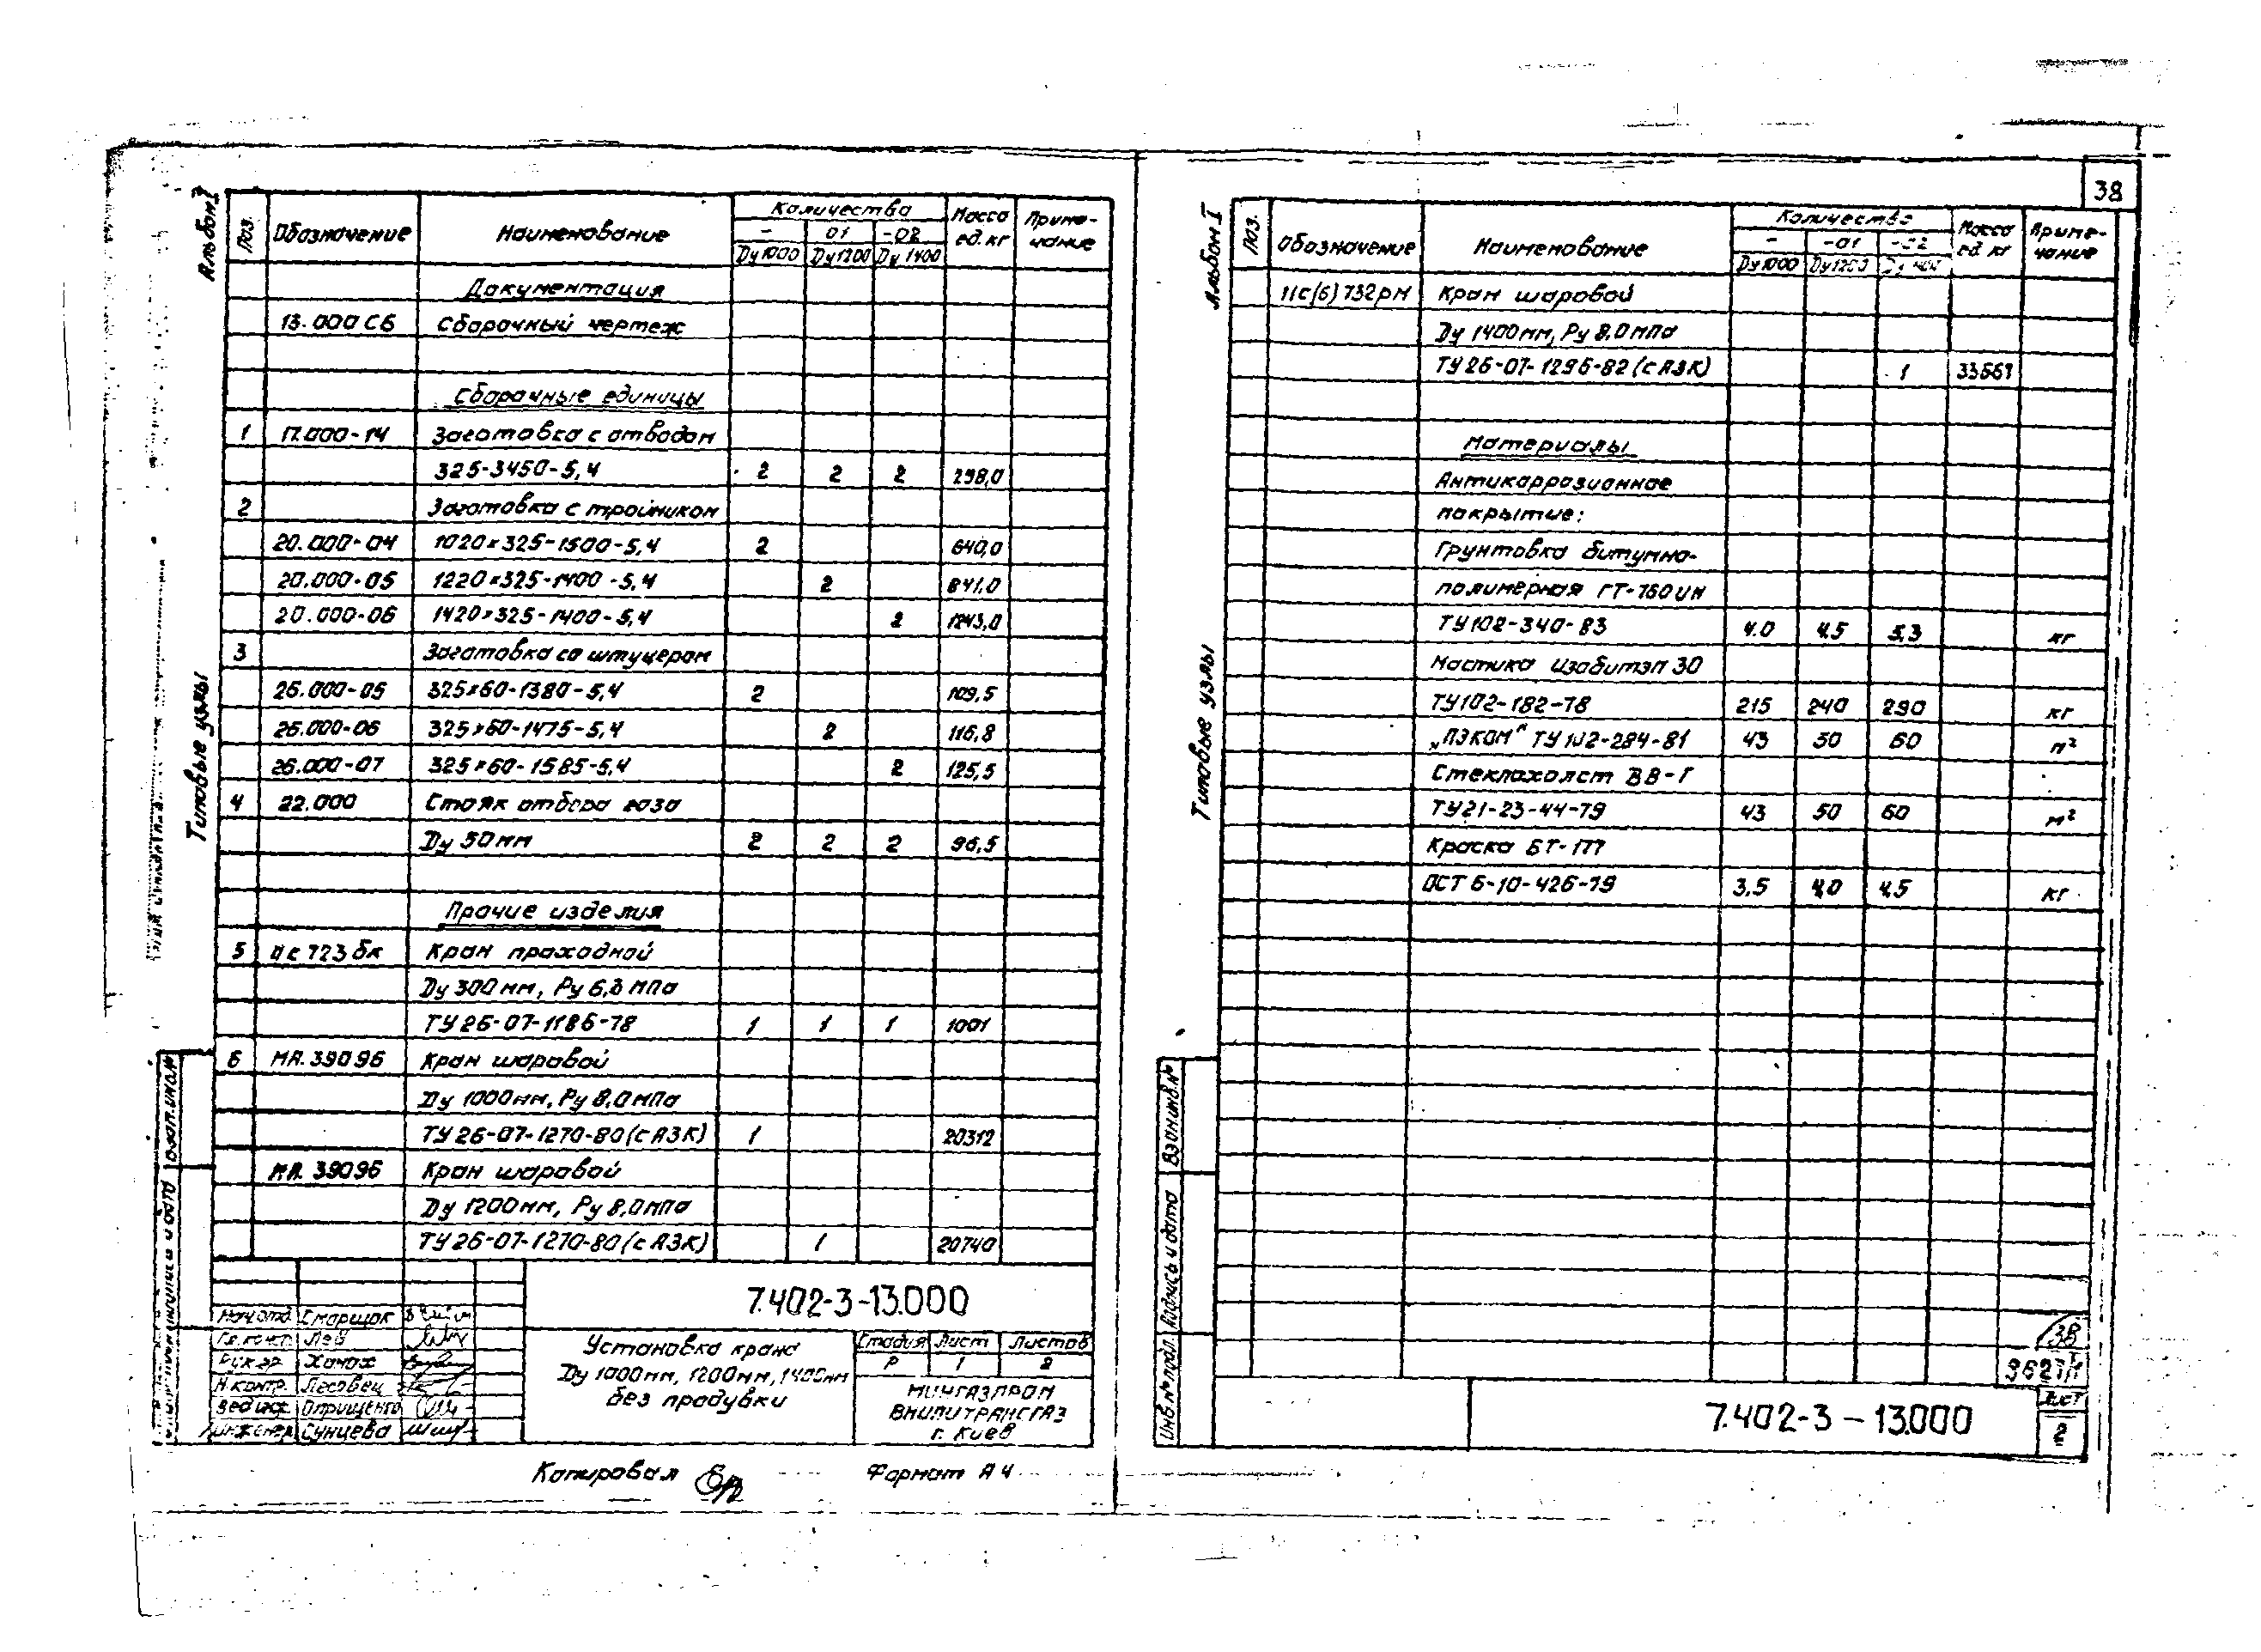 38
Альбом I
Типовые узлы
Поз. Обозначение Наименование Количества Масса ед. кг Приме-чание
- 01 -02
Ду 1000 Ду 1200 Ду 1400
Документация
13.000 СБ Сборочный чертеж
Сборочные единицы
1 17.000-14 Заготовка с отводом
325-3450-5,4 2 2 2 298,0
2 Заготовка с тройником
20.000-04 1020×325-1500-5,4 2 640,0
20.000-05 1220×325-1400-5,4 2 841,0
20.000-06 1420×325-1400-5,4 2 1243,0
3 Заготовка со штуцером
26.000-05 325×60-1380-5,4 2 109,5
26.000-06 325×60-1475-5,4 2 116,8
26.000-07 325×60-1585-5,4 2 125,5
4 22.000 Стояк отбора газа
Ду 50 мм 2 2 2 96,5
Прочие изделия
5 11с 723 бк Кран проходной
Ду 300 мм, Ру 6,3 мПа
ТУ 26-07-1186-78 1 1 1 1001
6 МА. 39096 Кран шаровой
Ду 1000 мм, Ру 8,0 мПа
ТУ 26-07-1270-80 (с АЗК) 1 20312
МА. 39096 Кран шаровой
Ду 1200 мм, Ру 8,0 мПа
ТУ 26-07-1270-80 (с АЗК) 1 20740
7.402-3-13.000
Нач.отд. Смарщок
Гл.конт. Лев
Рук.гр. Ханах
Н.контр. Лесовец
Вед.инж. Оприщенко
Инженер Сунцева
Установка крана
Ду 1000 мм, 1200 мм, 1400 мм
без продувки
Стадия Лист Листов
Р 1 2
Мингазпром
ВНИПИТРАНСГАЗ
г. Киев
Копировал
Формат А4
Альбом I
Типовые узлы
Поз. Обозначение Наименование Количество Масса ед. кг Приме-чание
- -01 -02
Ду 1000 Ду 1200 Ду 1400
11с(б) 732рм Кран шаровой
Ду 1400 мм, Ру 8,0 мПа
ТУ 26-07-1296-82 (с АЗК) 1 33661
Материалы
Антикоррозионное
покрытие:
Грунтовка битумно-
полимерная ГТ-760 ИН
ТУ 102-340-83 4.0 4.5 5,3 кг
Мастика изобитэп 30
ТУ 102-182-78 215 240 290 кг
„ПЭКОМ" ТУ 102-284-81 43 50 60 м²
Стеклохолст ВВ-Г
ТУ 21-23-44-79 43 50 60 м²
Краска БТ-177
ОСТ 6-10-426-79 3,5 4,0 4,5 кг
Взам.инв.№
Подпись и дата
Инв.№ подл.
38
7.402-3-13.000
Лист
2